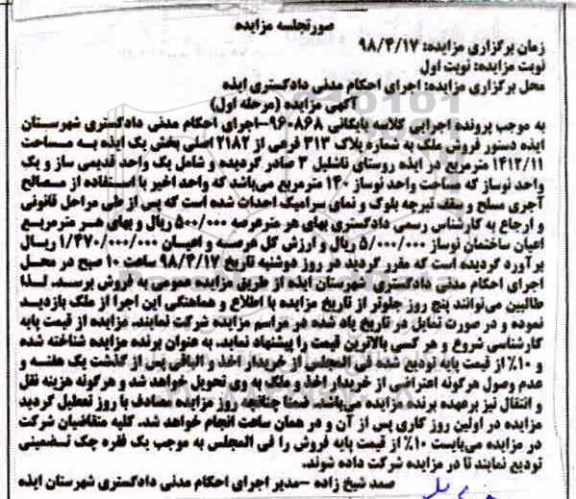 صورتجلسه مزایده
زمان برگزاری مزایده: ۹۸/۴/۱۷
نوبت مزایده: نوبت اول
محل برگزاری مزایده: اجرای احکام مدنی دادگستری ایذه
آگهی مزایده (مرحله اول)
به موجب پرونده اجرایی کلاسه بایگانی ۹۶۰۸۶۸-اجرای احکام مدنی دادگستری شهرستان
ایذه دستور فروش ملک به شماره پلاک ۳۱۳ فرعی از ۲۱۸۲ اصلی بخش یک ایذه به مساحت
۱۴۱۲/۱۱ مترمربع در ایذه روستای تاشلیل ۳ صادر گردیده و شامل یک واحد قدیمی ساز و یک
واحد نوساز که مساحت واحد نوساز ۱۴۰ مترمربع میباشد که واحد اخیر با استفاده از مصالح
آجری مسلح و سقف تیرچه بلوک و نمای سرامیک احداث شده است که پس از طی مراحل قانونی
و ارجاع به کارشناس رسمی دادگستری بهای هر مترعرصه ۵۰۰/۰۰۰ ریال و بهای هر مترمربع
اعیان ساختمان نوساز ۵/۰۰۰/۰۰۰ ریال و ارزش کل عرصه و اعیان ۱/۴۷۰/۰۰۰/۰۰۰ ریال
برآورد گردیده است که مقرر گردید در روز دوشنبه تاریخ ۹۸/۴/۱۷ ساعت ۱۰ صبح در محل
اجرای احکام مدنی دادگستری شهرستان ایذه از طریق مزایده عمومی به فروش برسد. لذا
طالبین می‌توانند پنج روز جلوتر از تاریخ مزایده با اطلاع و هماهنگی این اجرا از ملک بازدید
نموده و در صورت تمایل در تاریخ یاد شده در مراسم مزایده شرکت نمایند. مزایده از قیمت پایه
کارشناسی شروع و هر کسی بالاترین قیمت را پیشنهاد نماید. به عنوان برنده مزایده شناخته شده
و ۱۰٪ از قیمت پایه تودیع شده فی المجلس از خریدار اخذ و الباقی پس از گذشت یک هفته و
عدم وصول هرگونه اعتراضی از خریدار اخذ و ملک به وی تحویل خواهد شد و هرگونه هزینه نقل
و انتقال نیز برعهده برنده مزایده می‌باشد. ضمنا چنانچه روز مزایده مصادف با روز تعطیل گردید
مزایده در اولین روز کاری پس از آن و در همان ساعت انجام خواهد شد. کلیه متقاضیان شرکت
در مزایده می‌بایست ۱۰٪ از قیمت پایه فروش را فی المجلس به موجب یک فقره چک تضمینی
تودیع نمایند تا در مزایده شرکت داده شوند.
صمد شیخ زاده -مدیر اجرای احکام مدنی دادگستری شهرستان ایذه